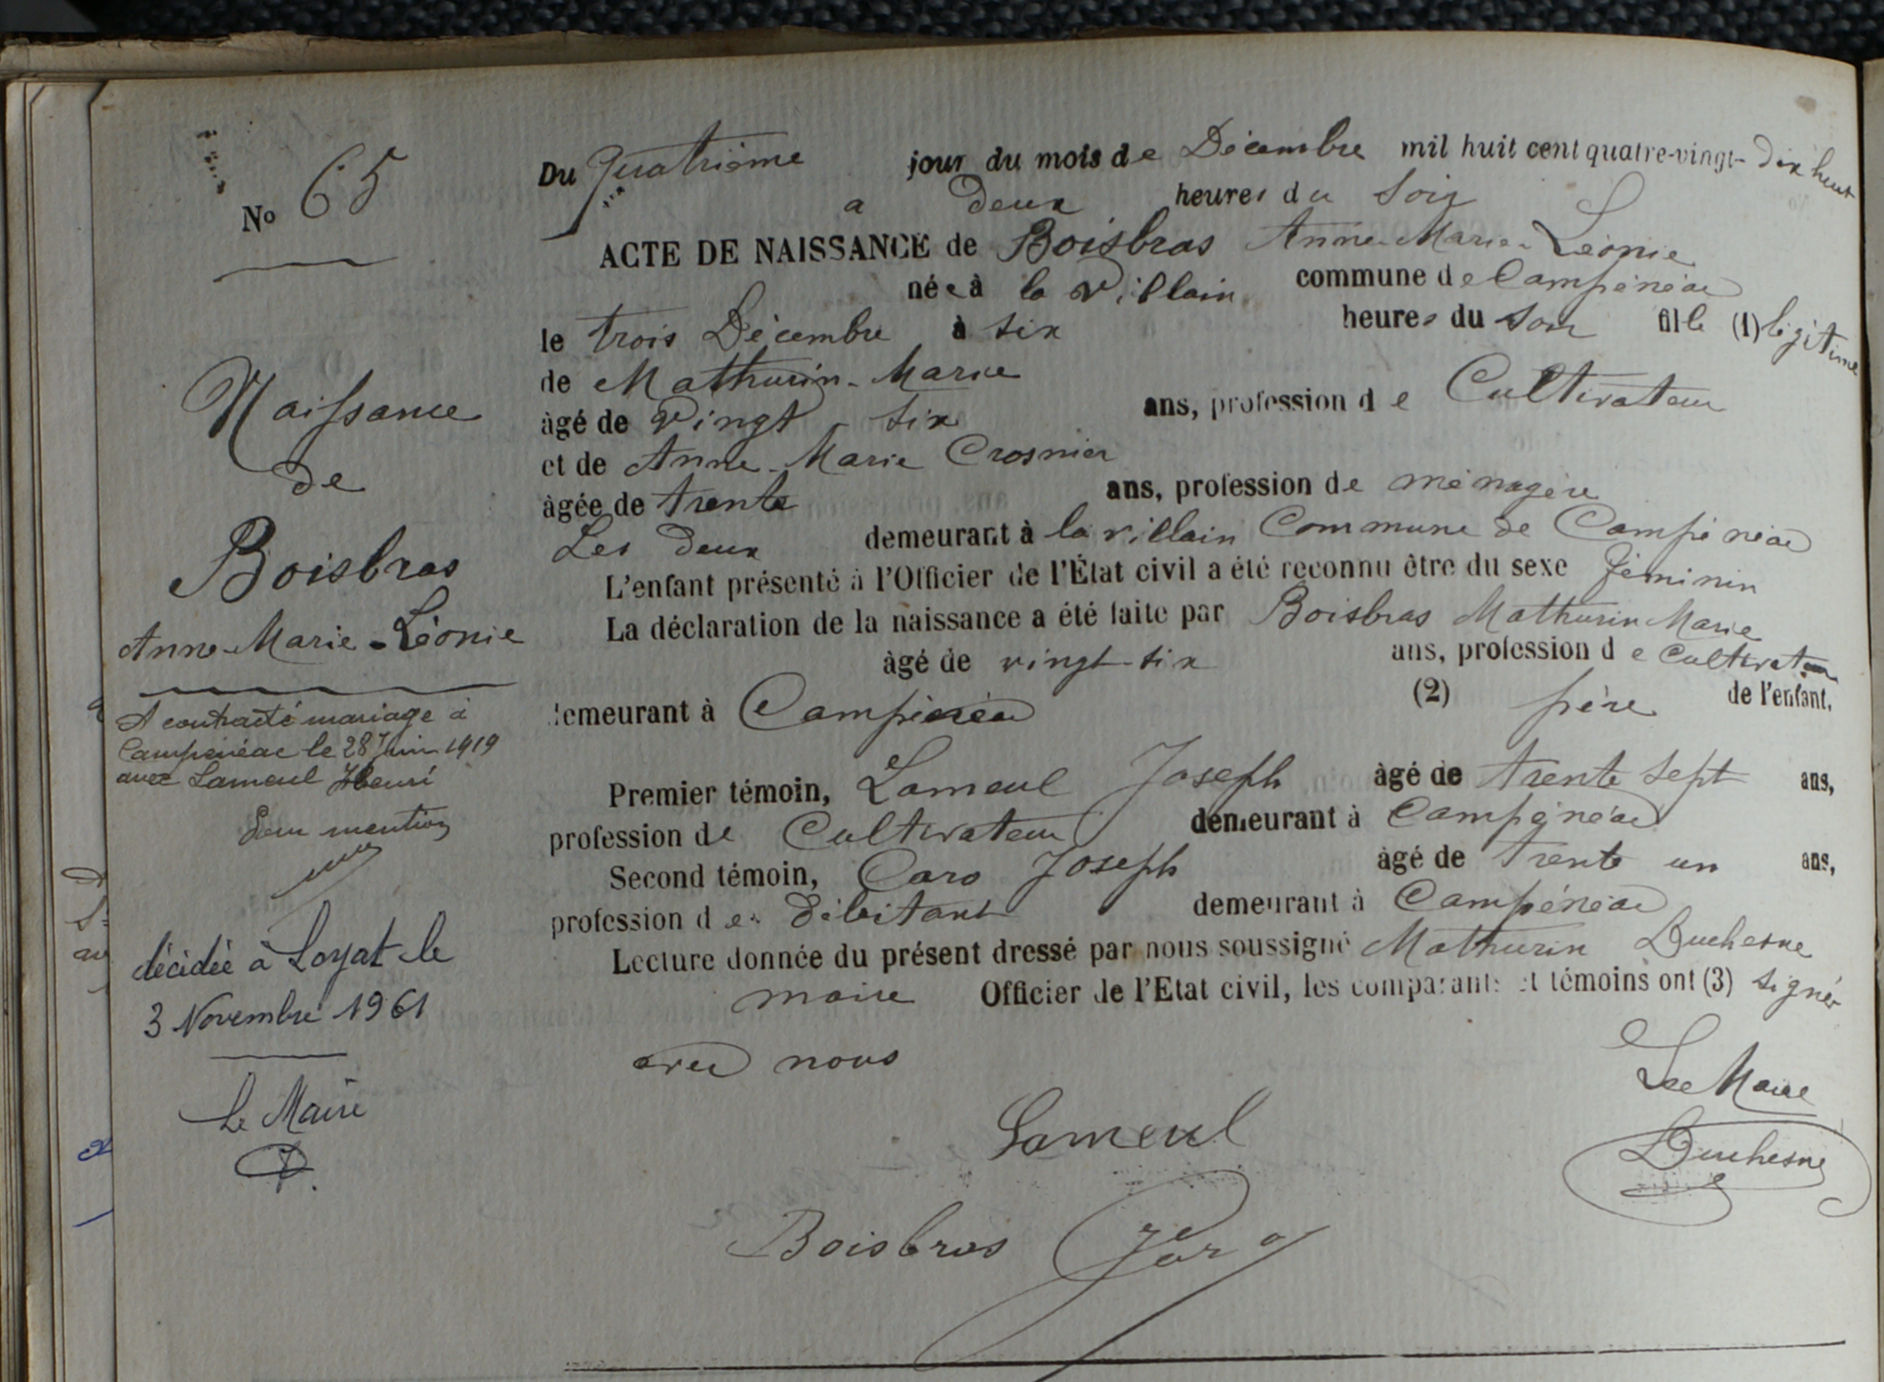 No 65
Naissance
de
Boisbras
Anne-Marie-Léonie
A contracté mariage à
Campénéac le 28 Juin 1919
avec Lameul Henri
mention
décédée à Loyat le
3 Novembre 1961
Le Maire
Du quatrième jour du mois de Décembre mil huit cent quatre-vingt-dix huit
a deux heures du soir
ACTE DE NAISSANCE de Boisbras Anne-Marie-Léonie
née à la Villain commune de Campénéac
le trois Décembre à six heures du soir fille (1) légitime
de Mathurin-Marie
âgé de vingt six ans, profession de Cultivateur
et de Anne-Marie Crosnier
âgée de trente ans, profession de ménagère
Les deux demeurant à la villain Commune de Campénéac
L'enfant présenté à l'Officier de l'État civil a été reconnu être du sexe féminin
La déclaration de la naissance a été faite par Boisbras Mathurin Marie
âgé de vingt-six ans, profession de cultivateur
demeurant à Campénéac (2) père de l'enfant.
Premier témoin, Lameul Joseph âgé de trente sept ans,
profession de Cultivateur demeurant à Campénéac
Second témoin, Caro Joseph âgé de trente un ans,
profession de débitant demeurant à Campénéac
Lecture donnée du présent dressé par nous soussigné Mathurin Duchesne
maire Officier de l'Etat civil, les comparants et témoins ont (3) signés
avec nous
Le Maire
Lameul
Duchesne
Boisbras Caro